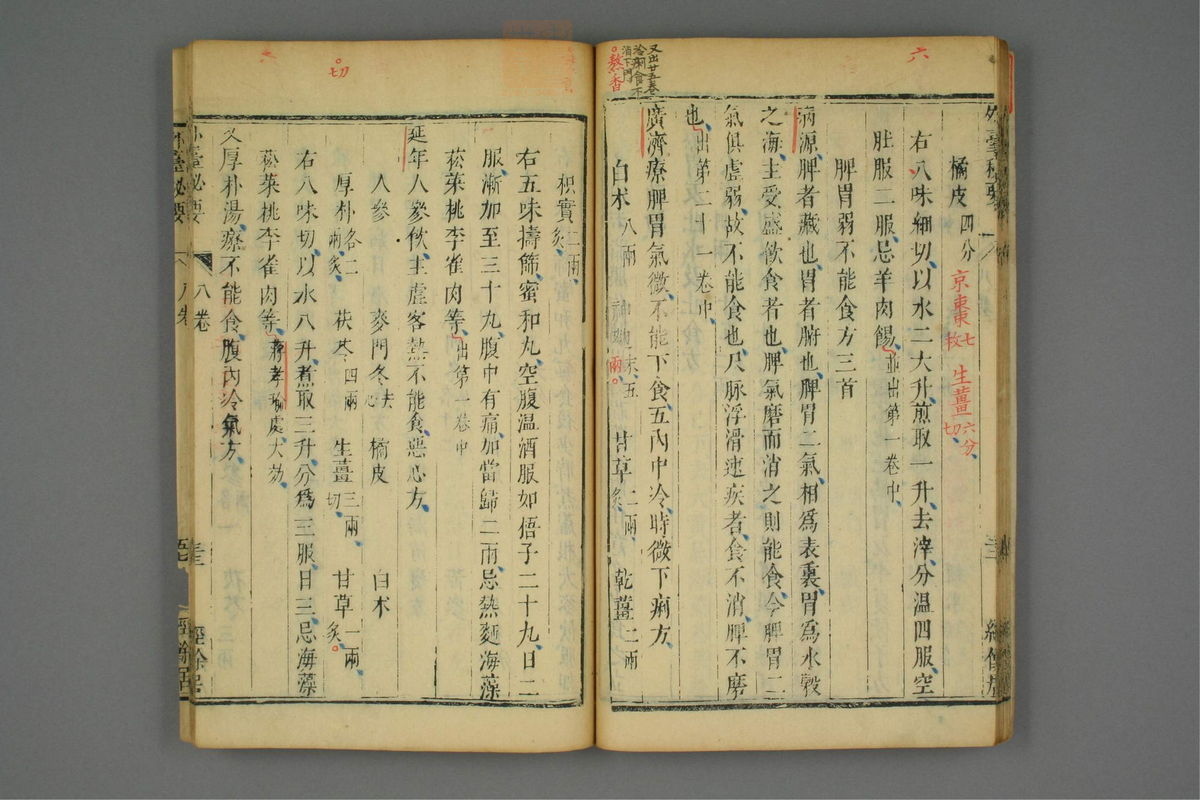 六
橘皮四分 京棗七枚 生薑六分切
右八味細切以水二大升煎取一升去滓分温四服空
肚服二服忌羊肉餳並出第一卷中
脾胃弱不能食方三首
病源脾者藏也胃者腑也脾胃二氣相爲表裏胃爲水穀
之海主受盛飲食者也脾氣磨而消之則能食今脾胃二
氣俱虛弱故不能食也尺脉浮滑速疾者食不消脾不磨
也出第二十一卷中
廣濟療脾胃氣微不能下食五內中冷時微下痢方
又出廿五卷
冷痢食不
消下門
熬香
白朮八兩 神麴末五兩 甘草二兩炙 乾薑二兩
枳實二兩炙
右五味擣篩蜜和丸空腹温酒服如梧子二十丸日二
服漸加至三十丸腹中有痛加當歸二兩忌熱麵海藻
菘菜桃李雀肉等出第一卷中
延年人參飲主虛客熱不能食惡心方
人參 麥門冬去心 橘皮 白朮
切
厚朴各二兩炙 茯苓四兩 生薑三兩切 甘草一兩炙
右八味切以水八升煮取三升分爲三服日三忌海藻
菘菜桃李雀肉等蔣孝瑜處大効
又厚朴湯療不能食腹內冷氣方
外臺秘要 八卷 經餘居